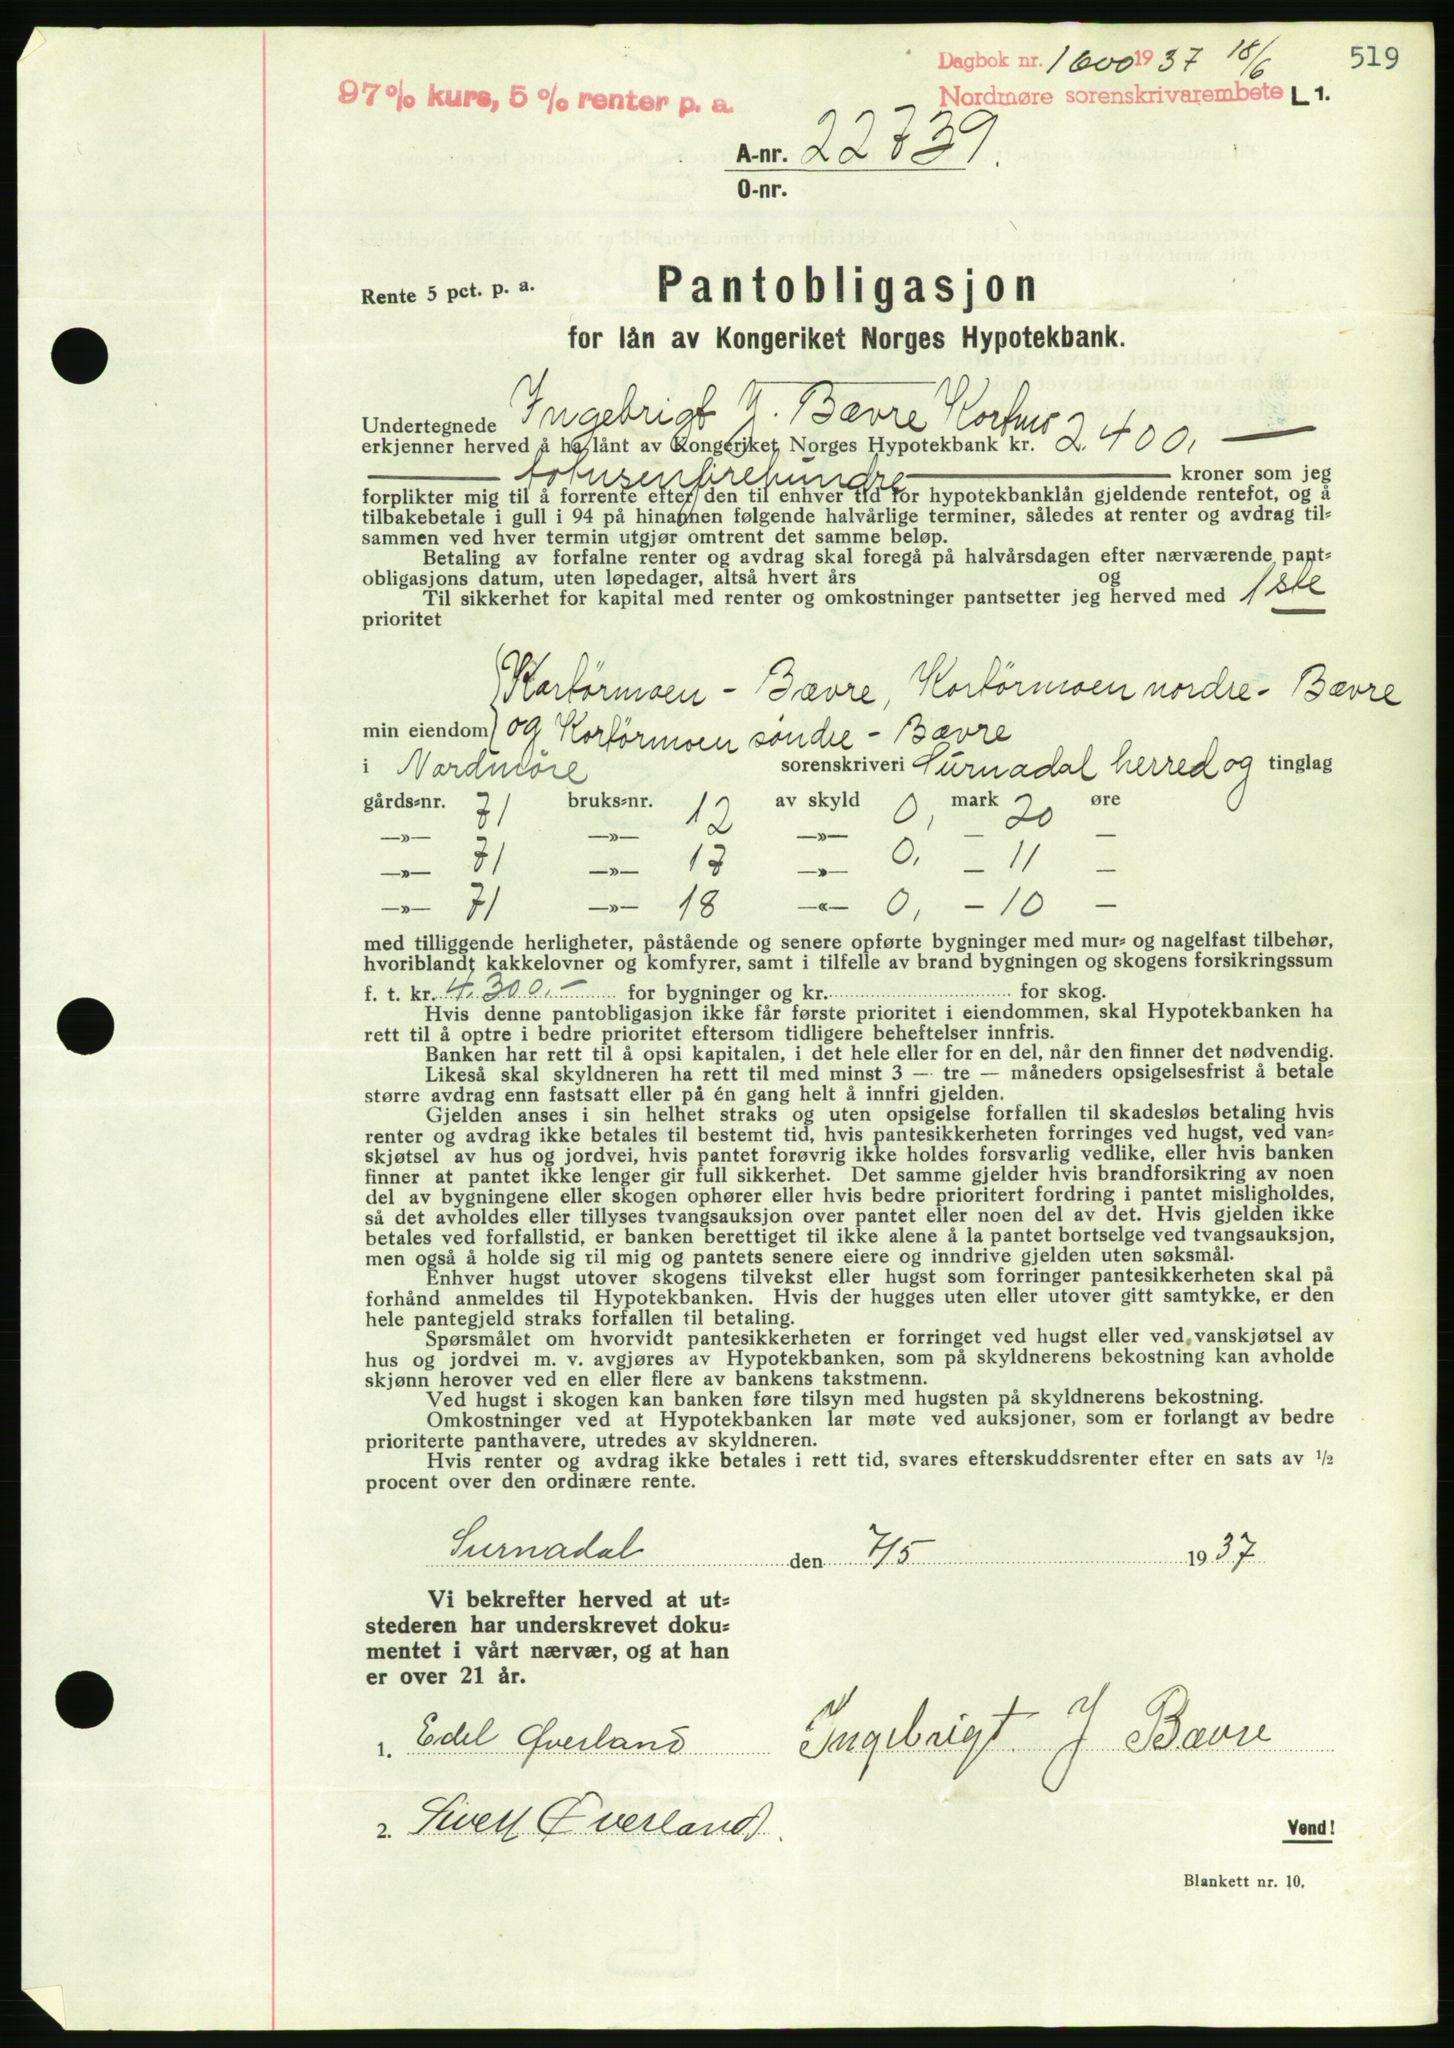 Dagbok nr. 1600 1937 18/6
519
97% kurs, 5% renter p. a.
Nordmøre sorenskrivarembete L 1.
A-nr. 22739.
O-nr.
Rente 5 pct. p. a.
Pantobligasjon
for lån av Kongeriket Norges Hypotekbank.
Undertegnede Ingebrigt J. Bævre
erkjenner herved å ha lånt av Kongeriket Norges Hypotekbank kr. 2.400,—
totusenfirehundre kroner som jeg
forplikter mig til å forrente efter den til enhver tid for hypotekbanklån gjeldende rentefot, og å
tilbakebetale i gull i 94 på hinannen følgende halvårlige terminer, således at renter og avdrag til-
sammen ved hver termin utgjør omtrent det samme beløp.
Betaling av forfalne renter og avdrag skal foregå på halvårsdagen efter nærværende pant-
obligasjons datum, uten løpedager, altså hvert års og
Til sikkerhet for kapital med renter og omkostninger pantsetter jeg herved med 1ste
prioritet
Kortörmoen - Bævre, Kortörmoen nordre - Bævre
min eiendom og Kortörmoen søndre - Bævre
i Nordmöre sorenskriveri Surnadal herred og tinglag
gårds-nr. 71 bruks-nr. 12 av skyld 0, mark 20 øre
—»— —»— —»— — —
—»— 71 —»— 17 —»— 0, — 11 —
—»— 71 —»— 18 —«— 0, — 10 —
med tilliggende herligheter, påstående og senere opførte bygninger med mur- og nagelfast tilbehør,
hvoriblandt kakkelovner og komfyrer, samt i tilfelle av brand bygningen og skogens forsikringssum
f. t. kr. 4.300,— for bygninger og kr. for skog.
Hvis denne pantobligasjon ikke får første prioritet i eiendommen, skal Hypotekbanken ha
rett til å optre i bedre prioritet eftersom tidligere beheftelser innfris.
Banken har rett til å opsi kapitalen, i det hele eller for en del, når den finner det nødvendig.
Likeså skal skyldneren ha rett til med minst 3 — tre — måneders opsigelsesfrist å betale
større avdrag enn fastsatt eller på én gang helt å innfri gjelden.
Gjelden anses i sin helhet straks og uten opsigelse forfallen til skadesløs betaling hvis
renter og avdrag ikke betales til bestemt tid, hvis pantesikkerheten forringes ved hugst, ved van-
skjøtsel av hus og jordvei, hvis pantet forøvrig ikke holdes forsvarlig vedlike, eller hvis banken
finner at pantet ikke lenger gir full sikkerhet. Det samme gjelder hvis brandforsikring av noen
del av bygningene eller skogen ophører eller hvis bedre prioritert fordring i pantet misligholdes,
så det avholdes eller tillyses tvangsauksjon over pantet eller noen del av det. Hvis gjelden ikke
betales ved forfallstid, er banken berettiget til ikke alene å la pantet bortselge ved tvangsauksjon,
men også å holde sig til mig og pantets senere eiere og inndrive gjelden uten søksmål.
Enhver hugst utover skogens tilvekst eller hugst som forringer pantesikkerheten skal på
forhånd anmeldes til Hypotekbanken. Hvis der hugges uten eller utover gitt samtykke, er den
hele pantegjeld straks forfallen til betaling.
Spørsmålet om hvorvidt pantesikkerheten er forringet ved hugst eller ved vanskjøtsel av
hus og jordvei m. v. avgjøres av Hypotekbanken, som på skyldnerens bekostning kan avholde
skjønn herover ved en eller flere av bankens takstmenn.
Ved hugst i skogen kan banken føre tilsyn med hugsten på skyldnerens bekostning.
Omkostninger ved at Hypotekbanken lar møte ved auksjoner, som er forlangt av bedre
prioriterte panthavere, utredes av skyldneren.
Hvis renter og avdrag ikke betales i rett tid, svares efterskuddsrenter efter en sats av 1/2
procent over den ordinære rente.
Surnadal den 7/5 1937
Vi bekrefter herved at ut-
stederen har underskrevet doku-
mentet i vårt nærvær, og at han
er over 21 år.
1. Edel Øverland Ingebrigt J Bævre
2. Sivert Øverland.
Vend!
Blankett nr. 10.